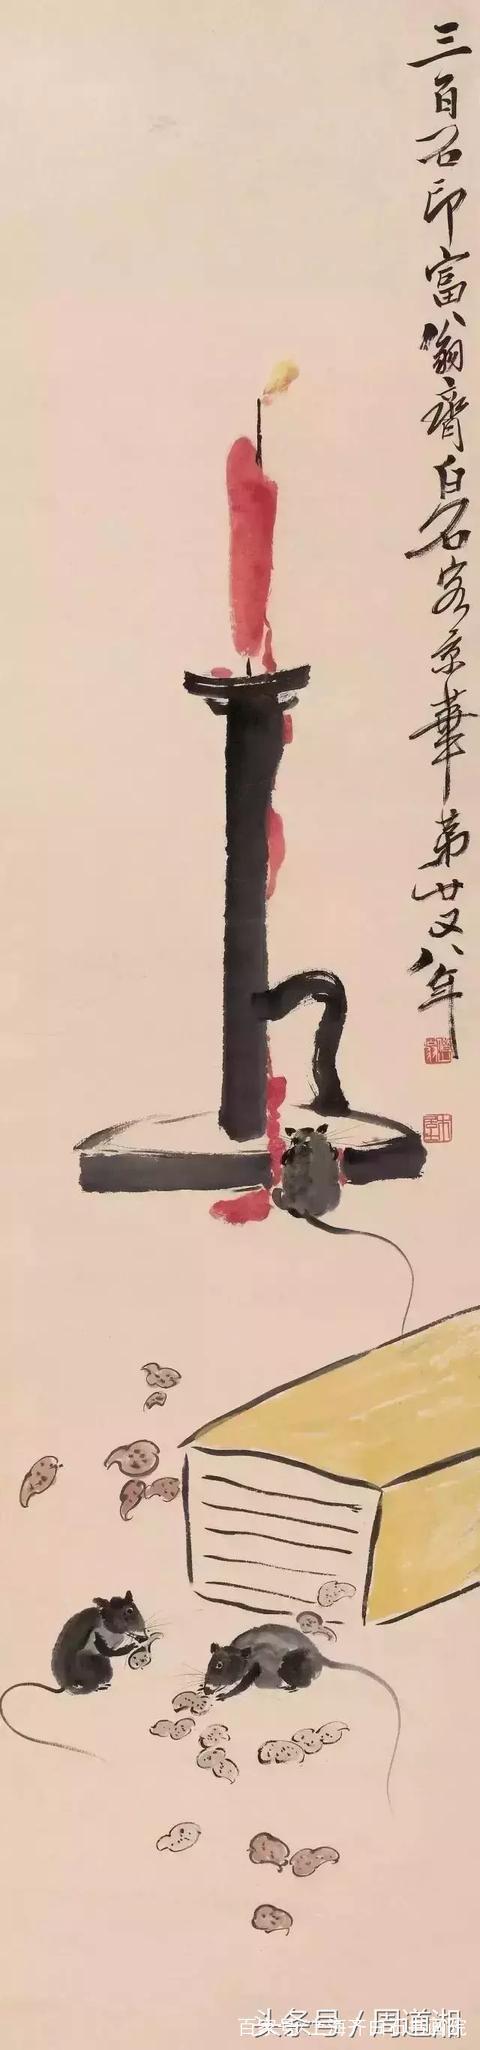 三百石印富翁齊白石客京華第廿又八年
头条号 / 周道湘